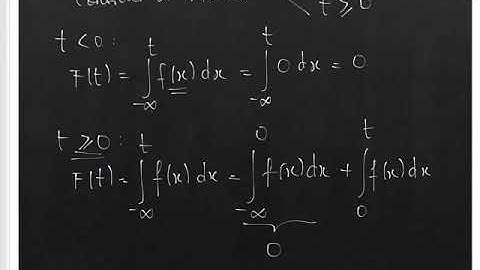 t ≥ 0
t < 0 :
F(t) = ∫_{-∞}^{t} f(x) dx = ∫_{-∞}^{t} 0 dx = 0
t ≥ 0 :
F(t) = ∫_{-∞}^{t} f(x) dx = ∫_{-∞}^{0} f(x) dx + ∫_{0}^{t} f(x) dx
0